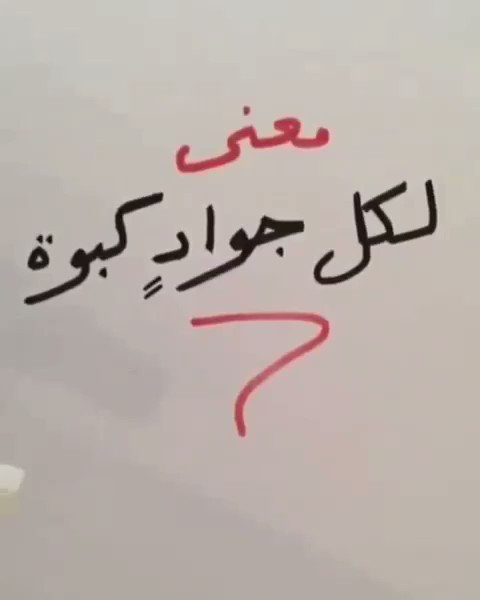 معنى
لكل جوادٍ كبوة
؟